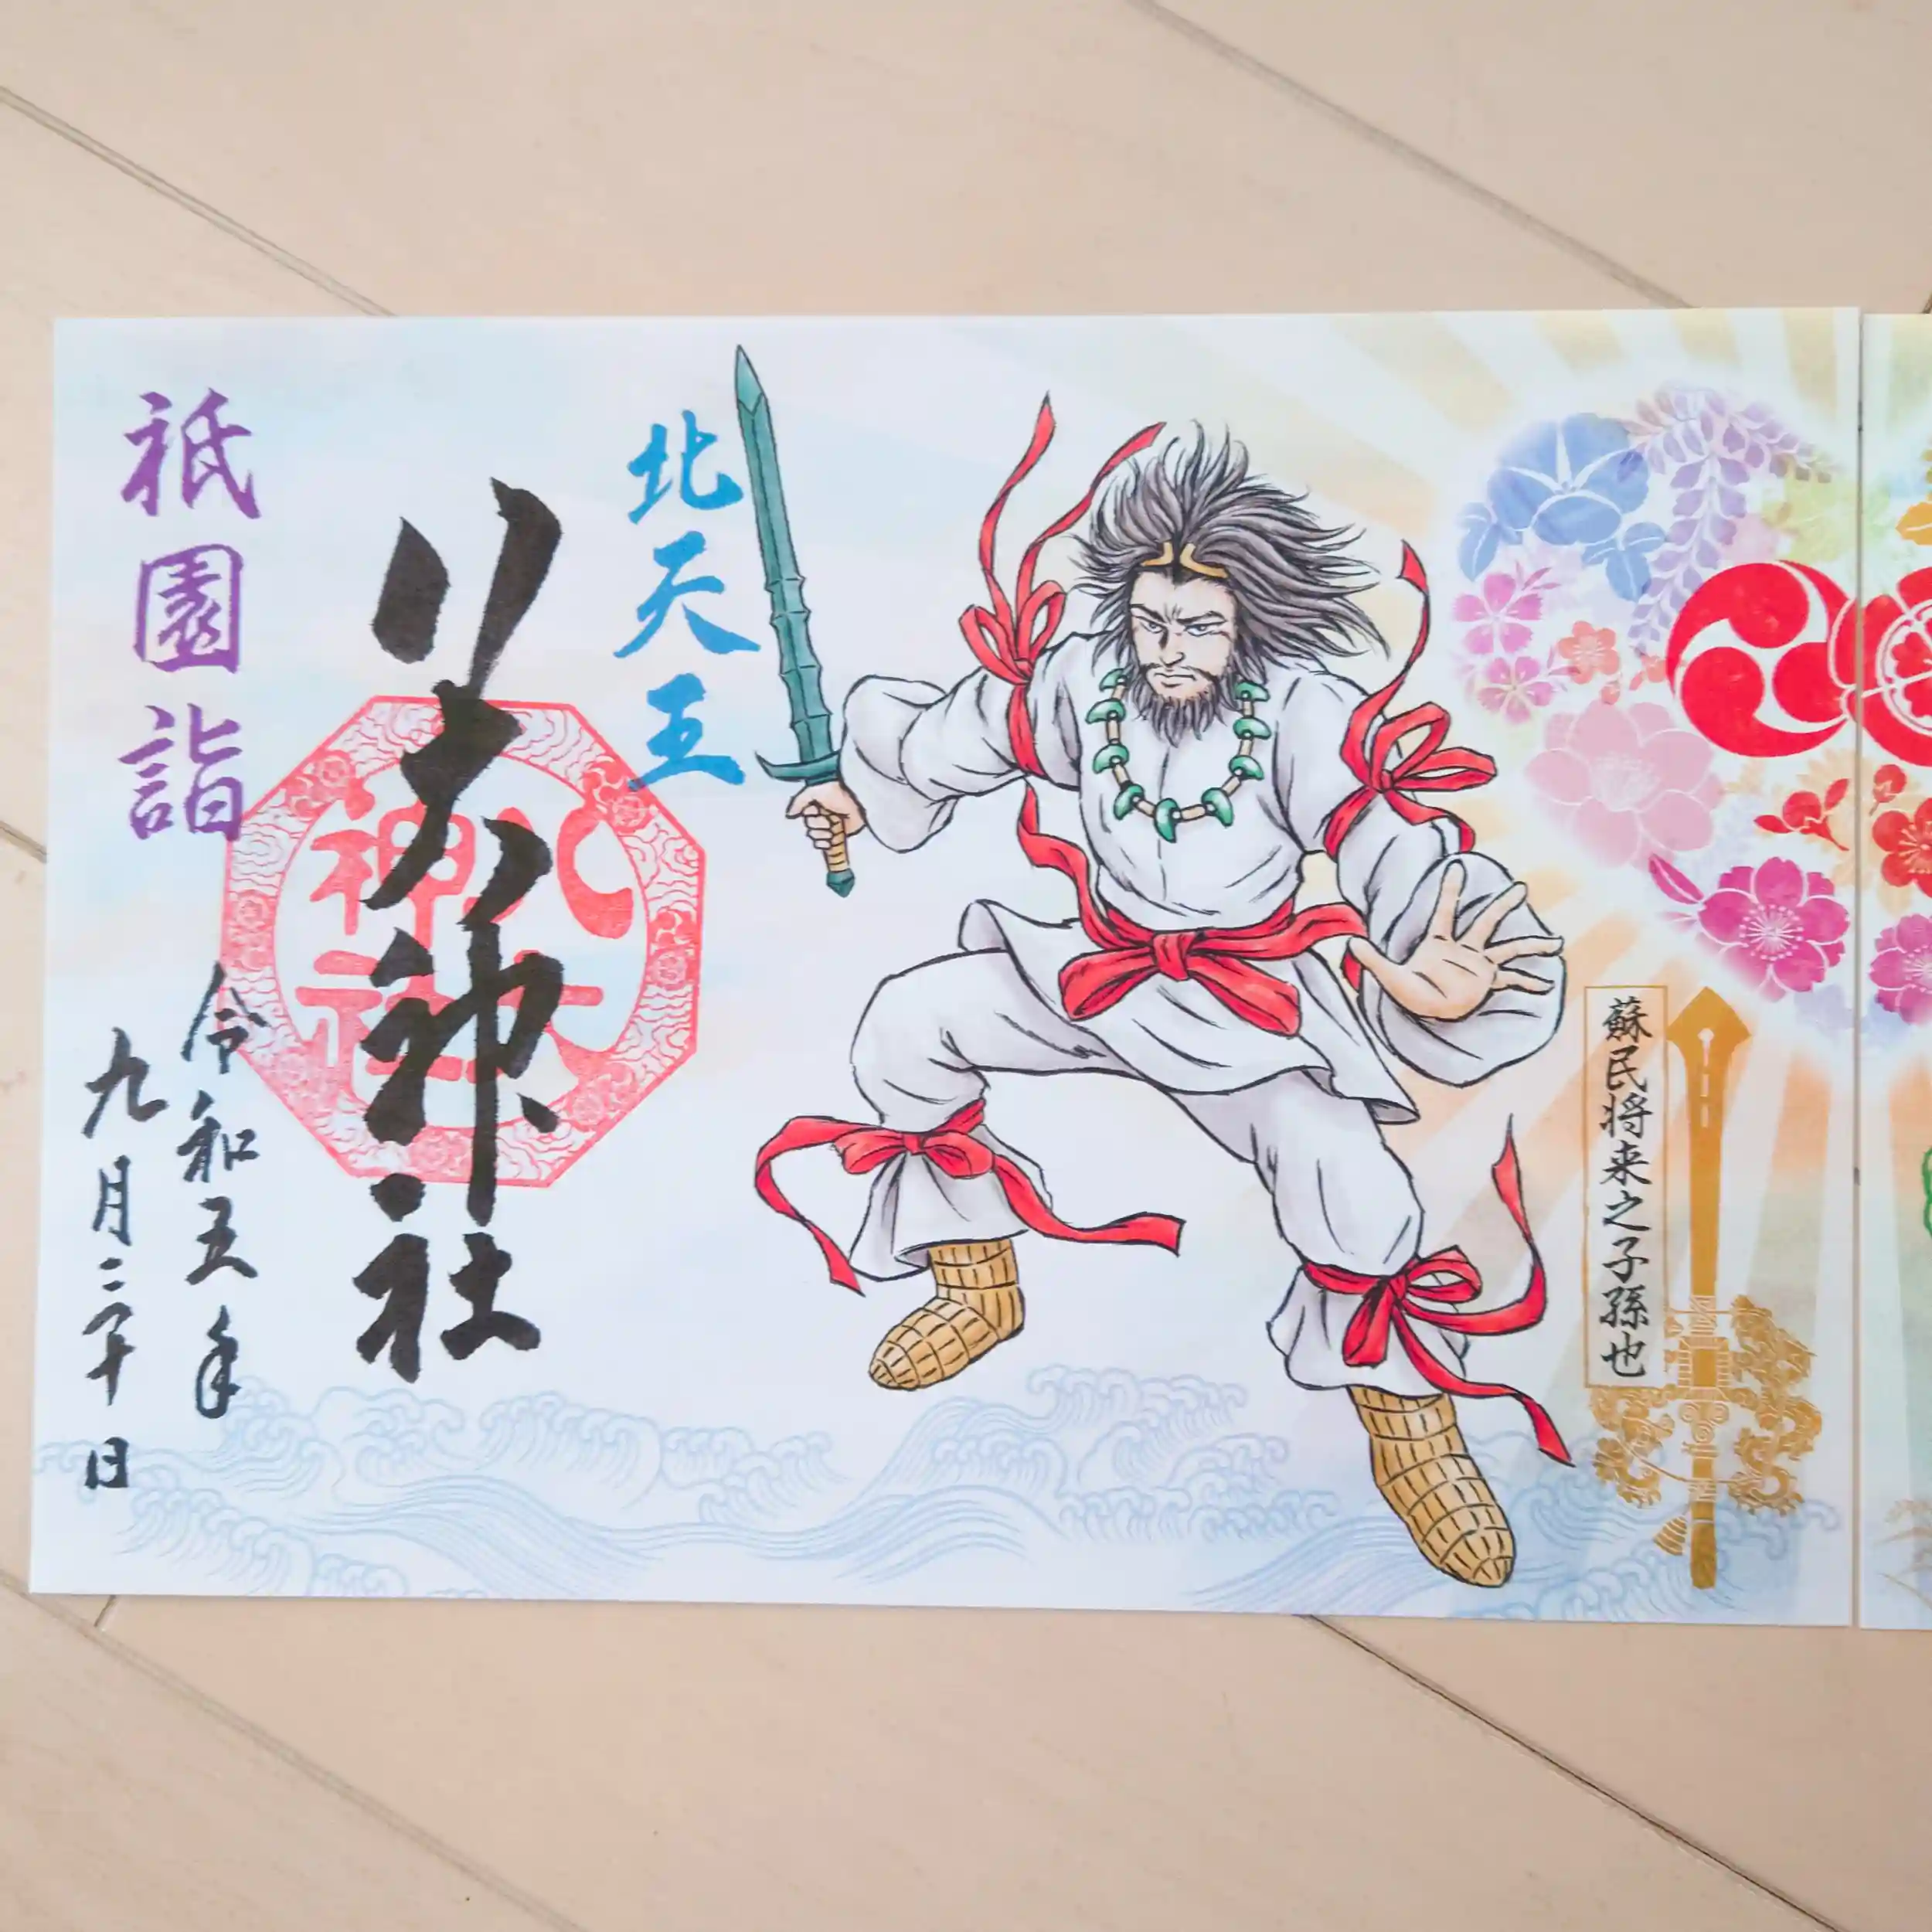 蘇民将来之子孫也
北天王
八大神社
八大
神社
祇園詣
令和五年
九月三十日